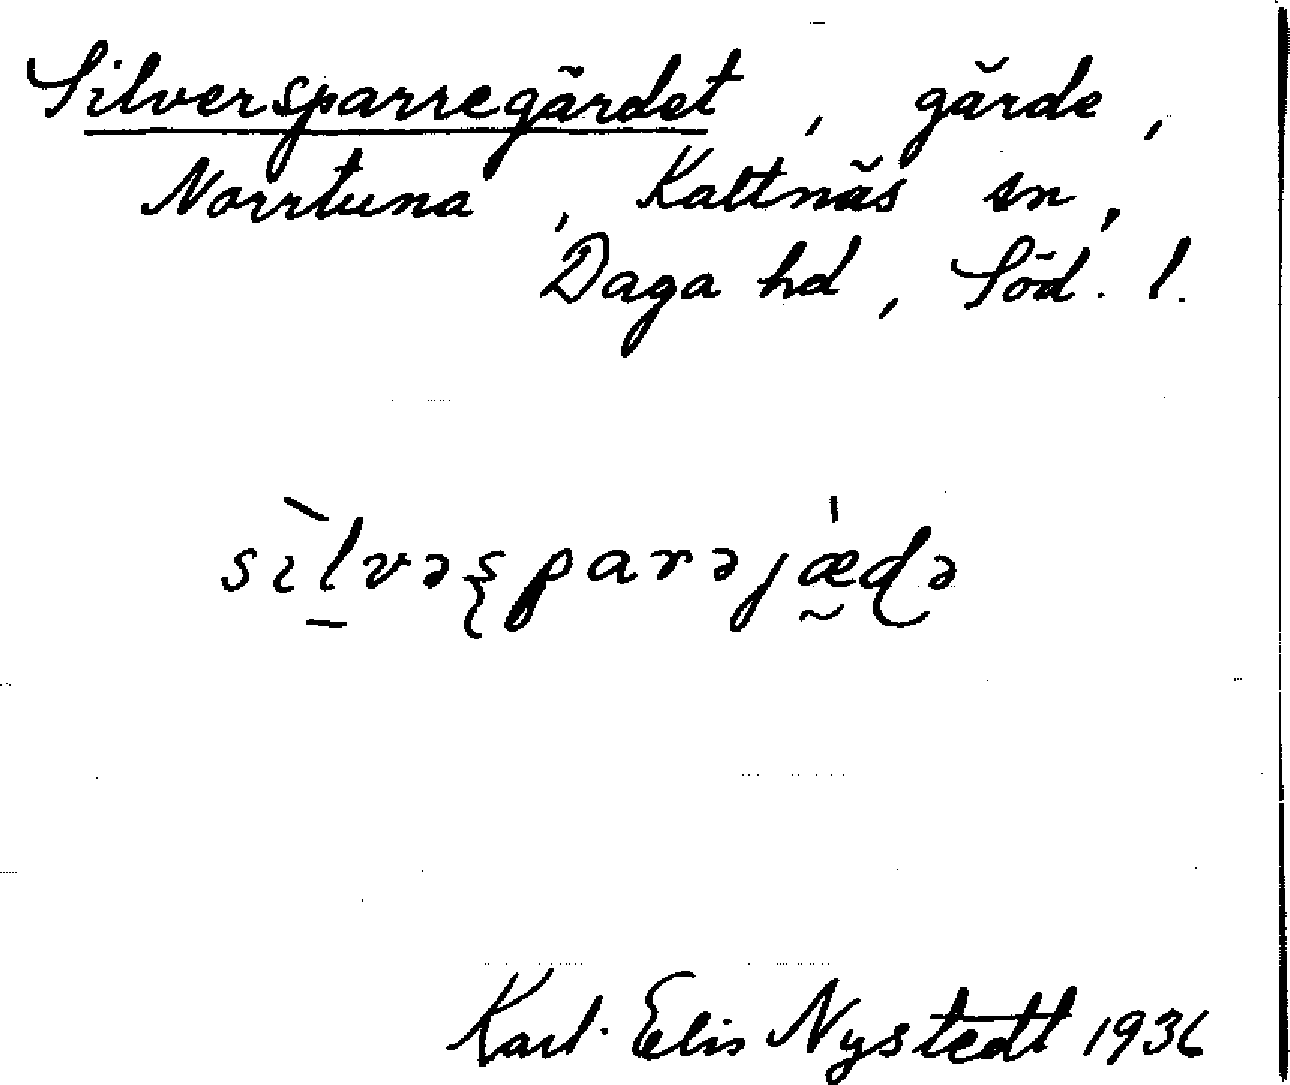 Silversparregärdet, gärde,
Norrtuna, Kattnäs sn,
Daga hd, Söd. l.
sɩ̀l̠vəʂparəjæ̰̍ɖə
Karl-Elis Nystedt 1936